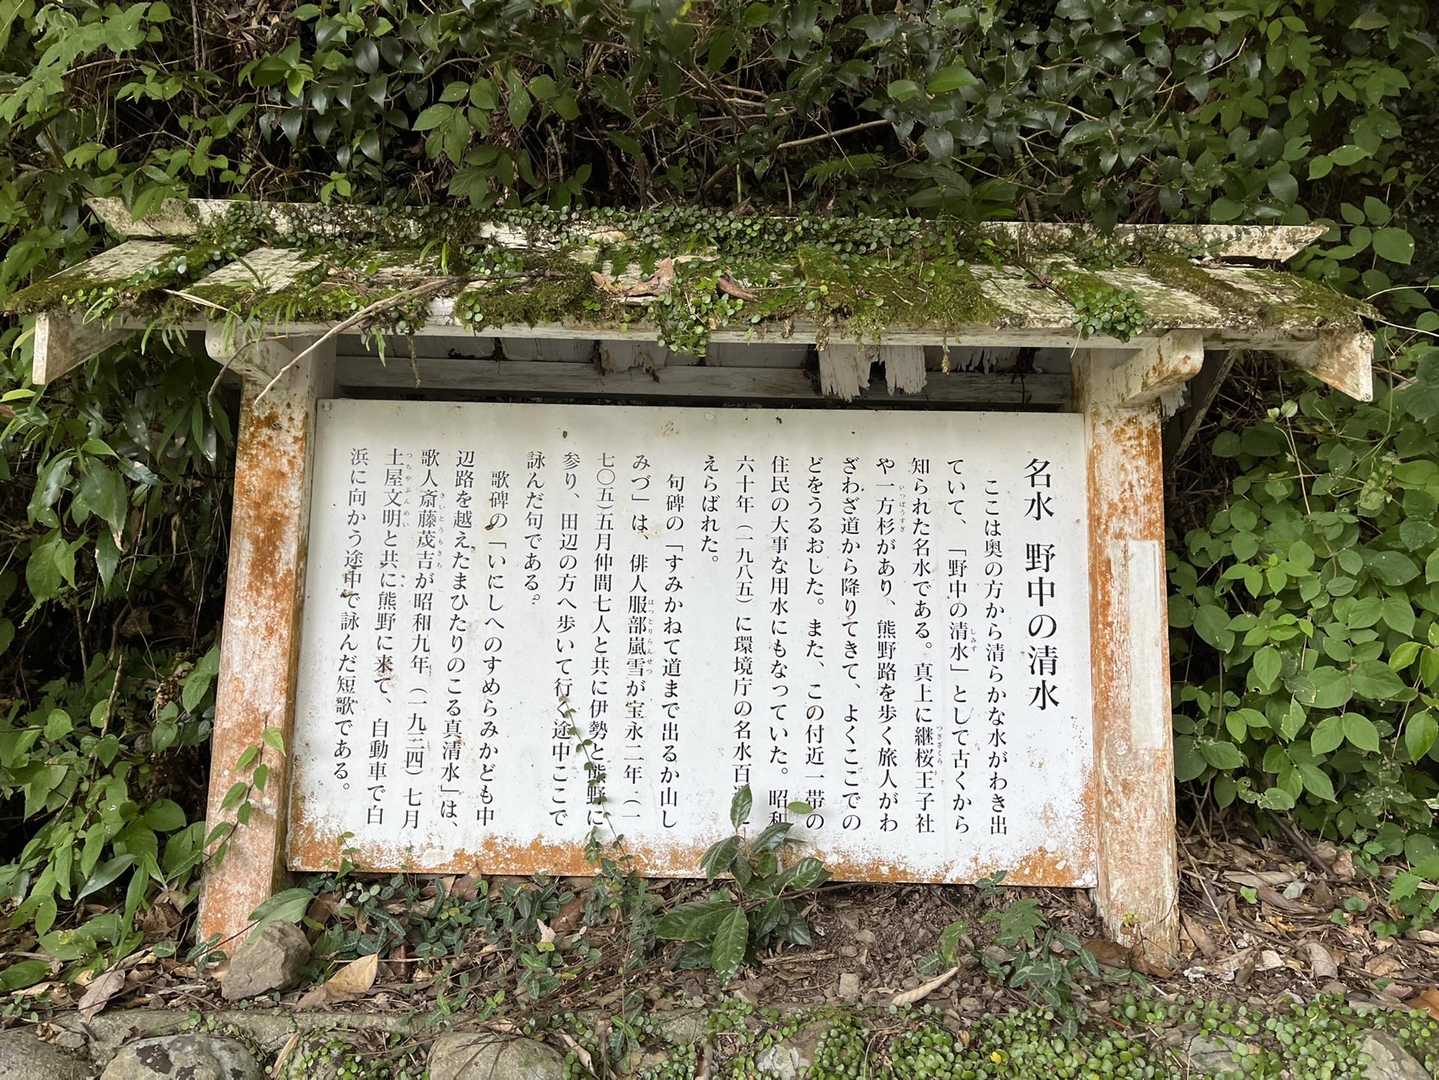 名水 野中の清水
ここは奥の方から清らかな水がわき出
ていて、「野中の清水」として古くから
知られた名水である。真上に継桜王子社
や一方杉があり、熊野路を歩く旅人がわ
ざわざ道から降りてきて、よくここでの
どをうるおした。また、この付近一帯の
住民の大事な用水にもなっていた。昭和
六十年（一九八五）に環境庁の名水百
えらばれた。
句碑の「すみかねて道まで出るか山し
みづ」は、俳人服部嵐雪が宝永二年（一
七〇五）五月仲間七人と共に伊勢と熊野に
参り、田辺の方へ歩いて行く途中ここで
詠んだ句である。
歌碑の「いにしへのすめらみかども中
辺路を越えたまひたりのこる真清水」は、
歌人斎藤茂吉が昭和九年（一九三四）七月
土屋文明と共に熊野に来て、自動車で白
浜に向かう途中で詠んだ短歌である。